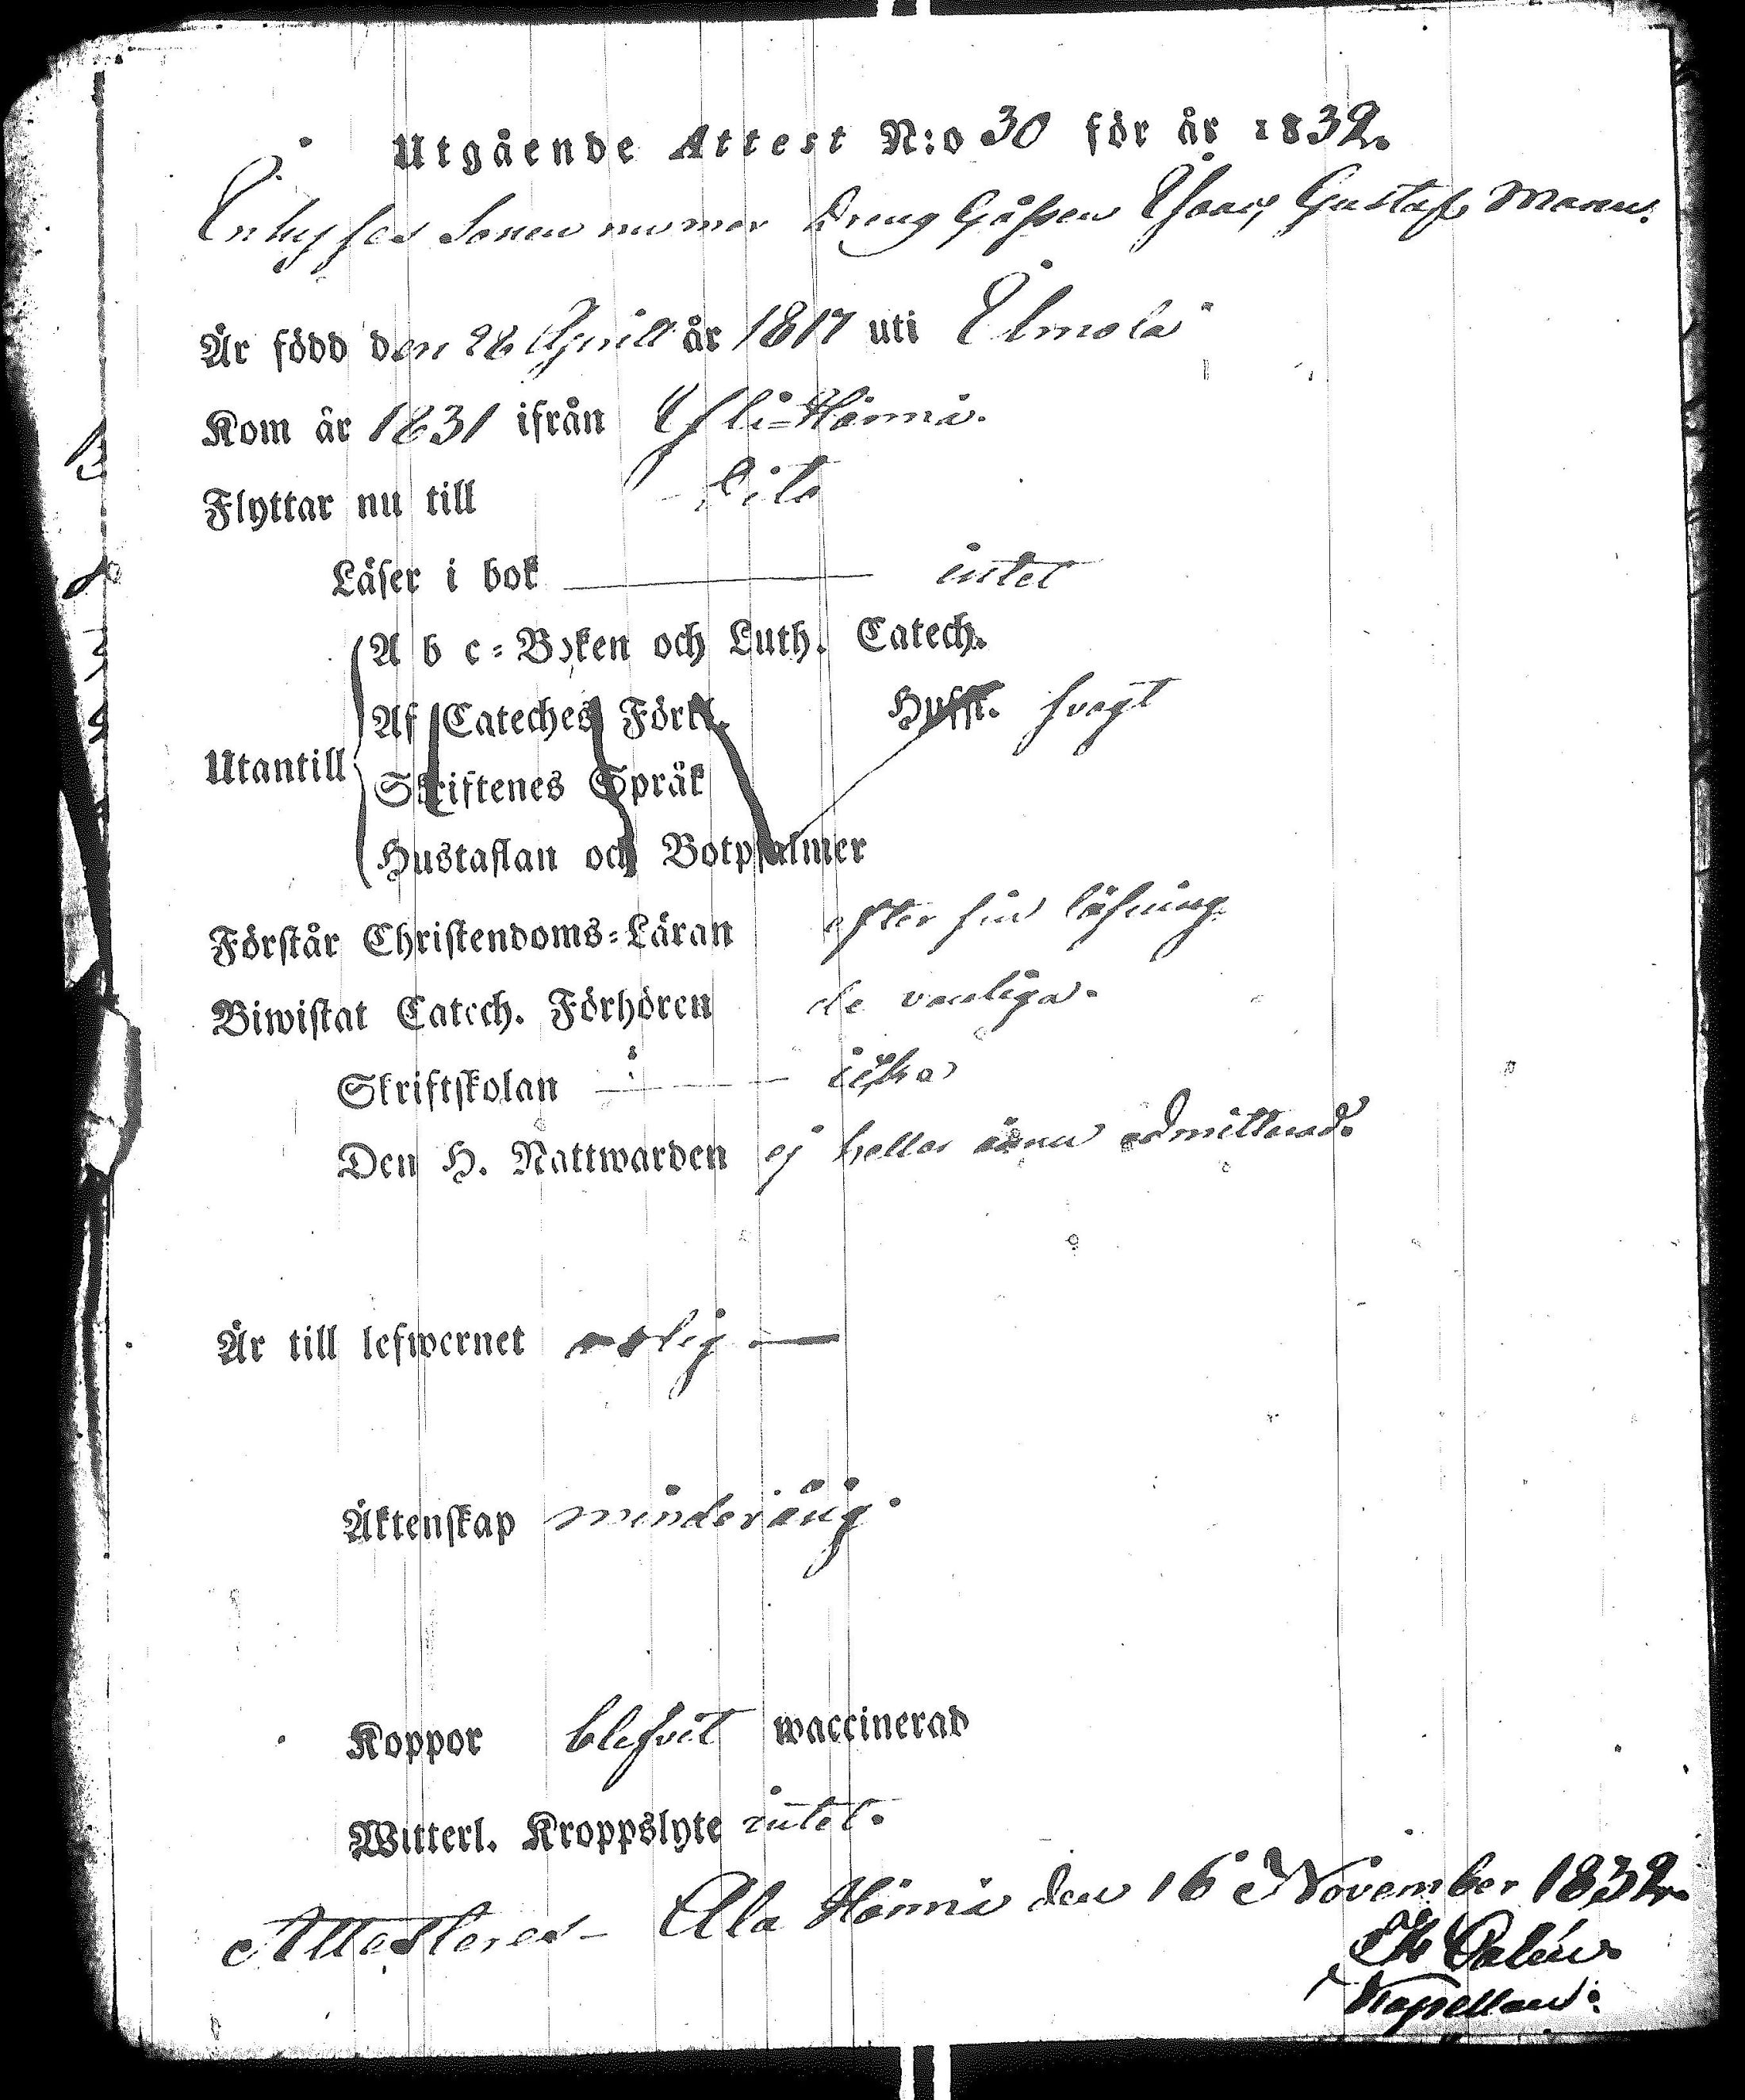 Utgående Attest N:o 30 för år 1832.
Enkhes Sonen numer Dreng Gåssen Isaac Gustafs Mann.
Är född den 28 Aprill år 1817 uti Ilmola
Kom år 1831 ifrån Yli-Härmä.
Flyttar nu till Dito
Läser i bok intet
A b c-Boken och Luth. Catech.
Af Cateches Förkl. Hyfsl. svagt
Utantill
Skriftenes Språk
Hustaflan och Botpsalmer
Förstår Christendoms-Läran efter sin läsning.
Biwistat Catech. Förhören de vanliga.
Skriftskolan icke
Den H. Nattwarden ej heller ännu admitterad.
Är till lefwernet
Äktenskap minderårig.
Koppor blifvit waccinerad
Witterl. Kroppslyte intet.
Attesteras - Ala Härmä den 16 November 1832.
Kapellan.